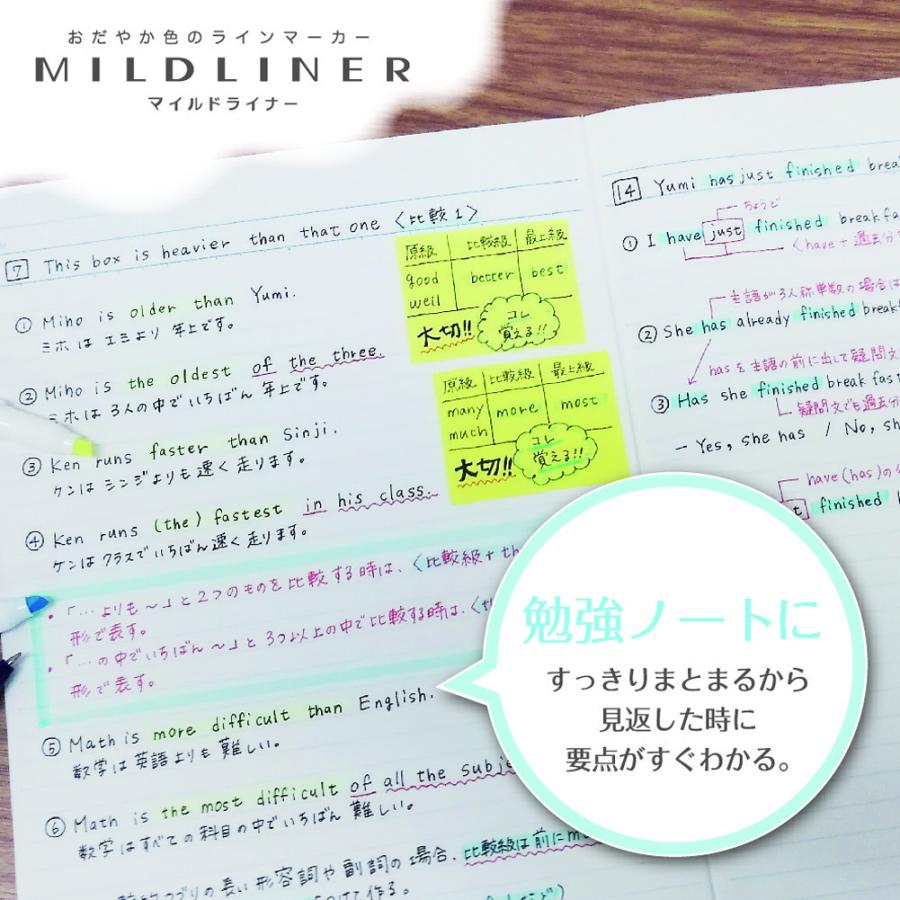 おだやか色のラインマーカー
MILDLINER
マイルドライナー
7 This box is heavier than that one 〈比較1〉
① Miho is older than Yumi.
ミホは エミより 年上です。
② Miho is the oldest of the three.
ミホは 3人の中でいちばん 年上です。
③ Ken runs faster than Sinji.
ケンは シンジよりも速く 走ります。
④ Ken runs (the) fastest in his class.
ケンは クラスでいちばん 速く 走ります。
・「…よりも~」と2つのものを比較する時は、〈比較級+th
形で表す。
・「…の中でいちばん~」と3つ以上の中で比較する時は、〈th
形で表す。
⑤ Math is more difficult than English.
数学は英語よりも 難しい。
⑥ Math is the most difficult of all the subje
数学はすべての科目の中でいちばん 難しい。
つづりの長い 形容詞や副詞の場合、比較級は前にm
て作る。
原級 比較級 最上級
good better best
well
大切!! コレ
覚える!!
原級 比較級 最上級
many more most
much
大切!! コレ
覚える!!
14 Yumi has just finished brea
ちょうど
① I have just finished breakfa
〈have+過去分
主語が3人称単数の場合は
② She has already finished breakf
hasを主語の前に出して疑問文
③ Has she finished breakfast
疑問文でも過去分
- Yes, she has / No, sh
have(has)の
finished
勉強ノートに
すっきりまとまるから
見返した時に
要点がすぐわかる。